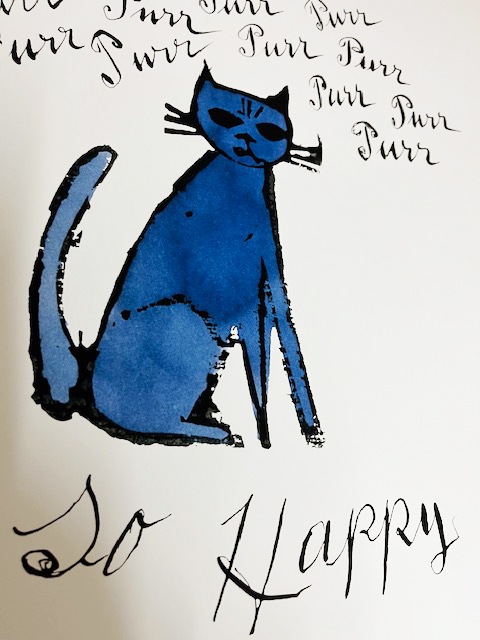 Purr Purr Purr
Purr Purr Purr Purr
Purr Purr
Purr
So Happy